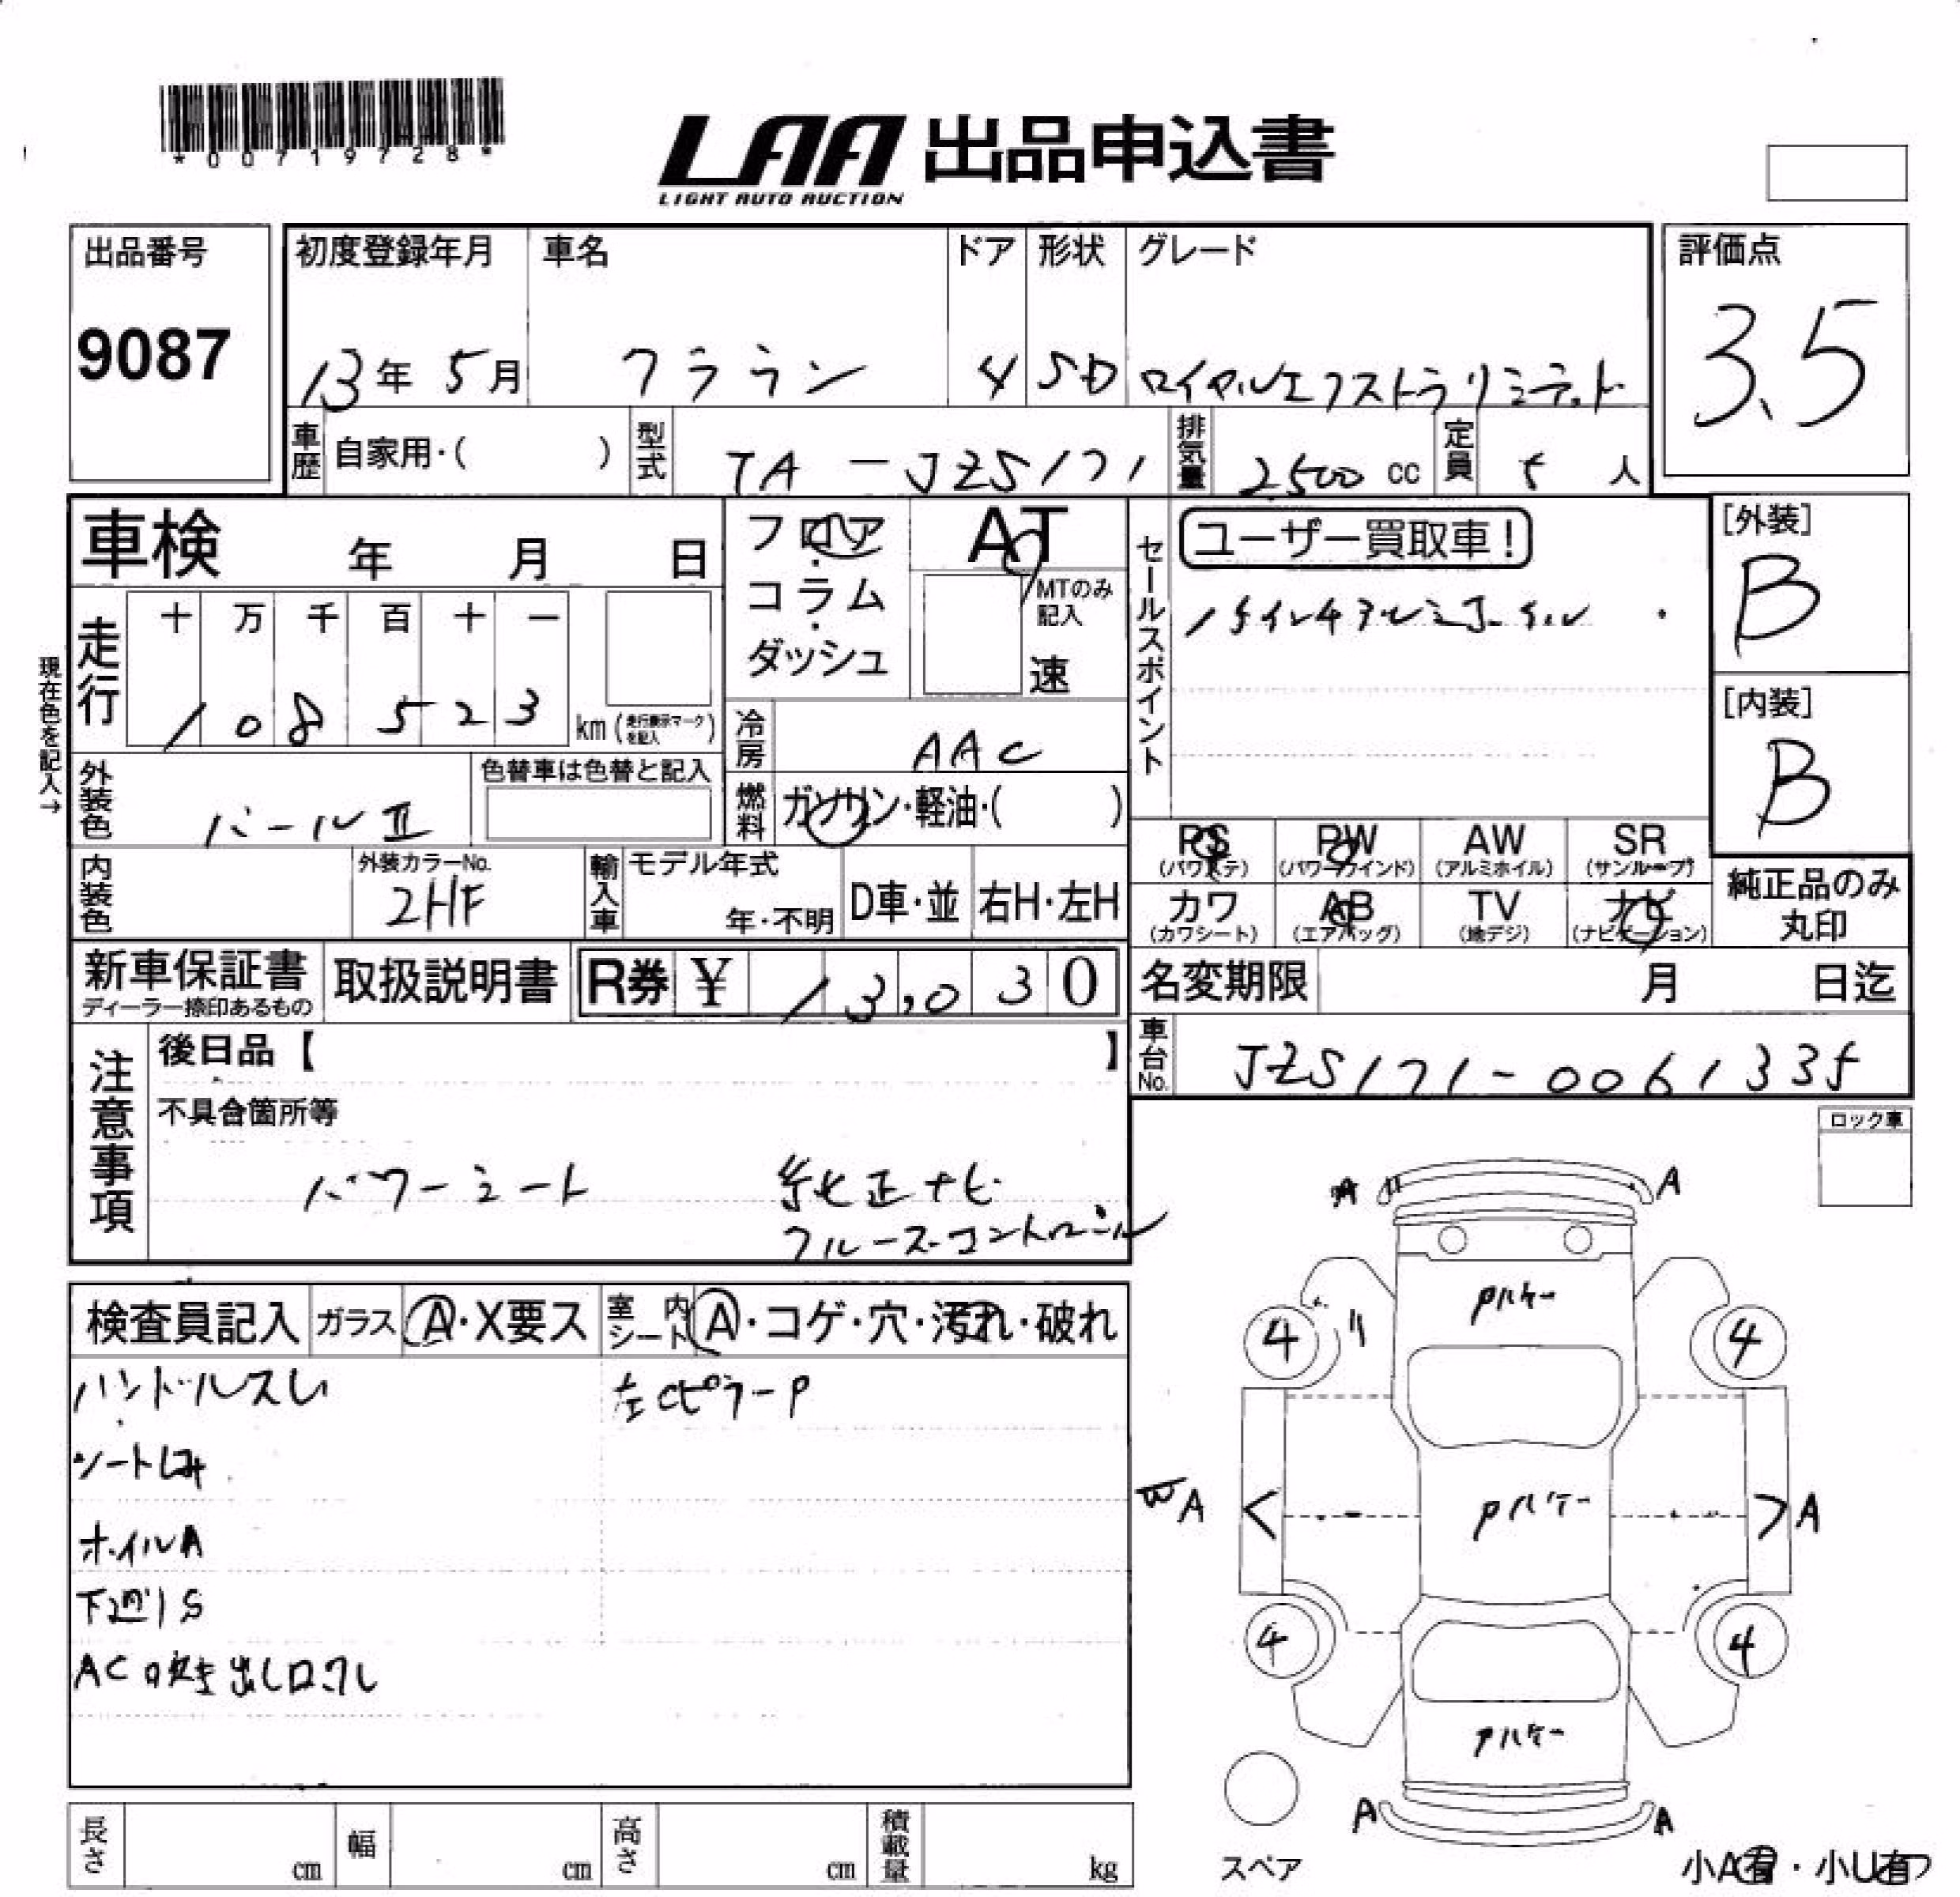 *00719728*
LAA 出品申込書
LIGHT AUTO AUCTION
出品番号
9087
初度登録年月
13年 5月
車名
クラウン
ドア
4
形状
SD
グレード
ロイヤルエクストラリミテッド
評価点
3.5
車歴 自家用・( )
型式 TA-JZS171
排気量 2500 cc
定員 5 人
車検 年 月 日
フロア・コラム・ダッシュ
AT
MTのみ記入
速
セールスポイント
ユーザー買取車!
[外装]
B
[内装]
B
現在色を記入→
走行
十 万 千 百 十 一
1 0 8 5 2 3 km (走行表示マークを記入)
冷房 AAC
外装色 パールⅡ
色替車は色替と記入
燃料 ガソリン・軽油・( )
PS (パワステ)
PW (パワーウインド)
AW (アルミホイル)
SR (サンルーフ)
カワ (カワシート)
AB (エアバッグ)
TV (地デジ)
ナビ (ナビゲーション)
純正品のみ丸印
内装色
外装カラーNo.
2HF
輸入車
モデル年式
年・不明
D車・並
右H・左H
新車保証書
ディーラー捺印あるもの
取扱説明書
R券 ¥ 13,030
名変期限 月 日迄
車台No. JZS171-0061335
注意事項
後日品【 】
不具合箇所等
パワーシート 純正ナビ
クルーズコントロール
ロック車
検査員記入
ガラス A・X要ス
室内シート A・コゲ・穴・汚れ・破れ
ハンドルスレ
左CピラーP
シートしみ
ホイルA
下廻りS
AC吹き出し口コワレ
A A
Pハケー
4 4
A Pハケー A
4 4
Pハケー
A A
スペア
小A有・小U有
長さ cm
幅 cm
高さ cm
積載量 kg